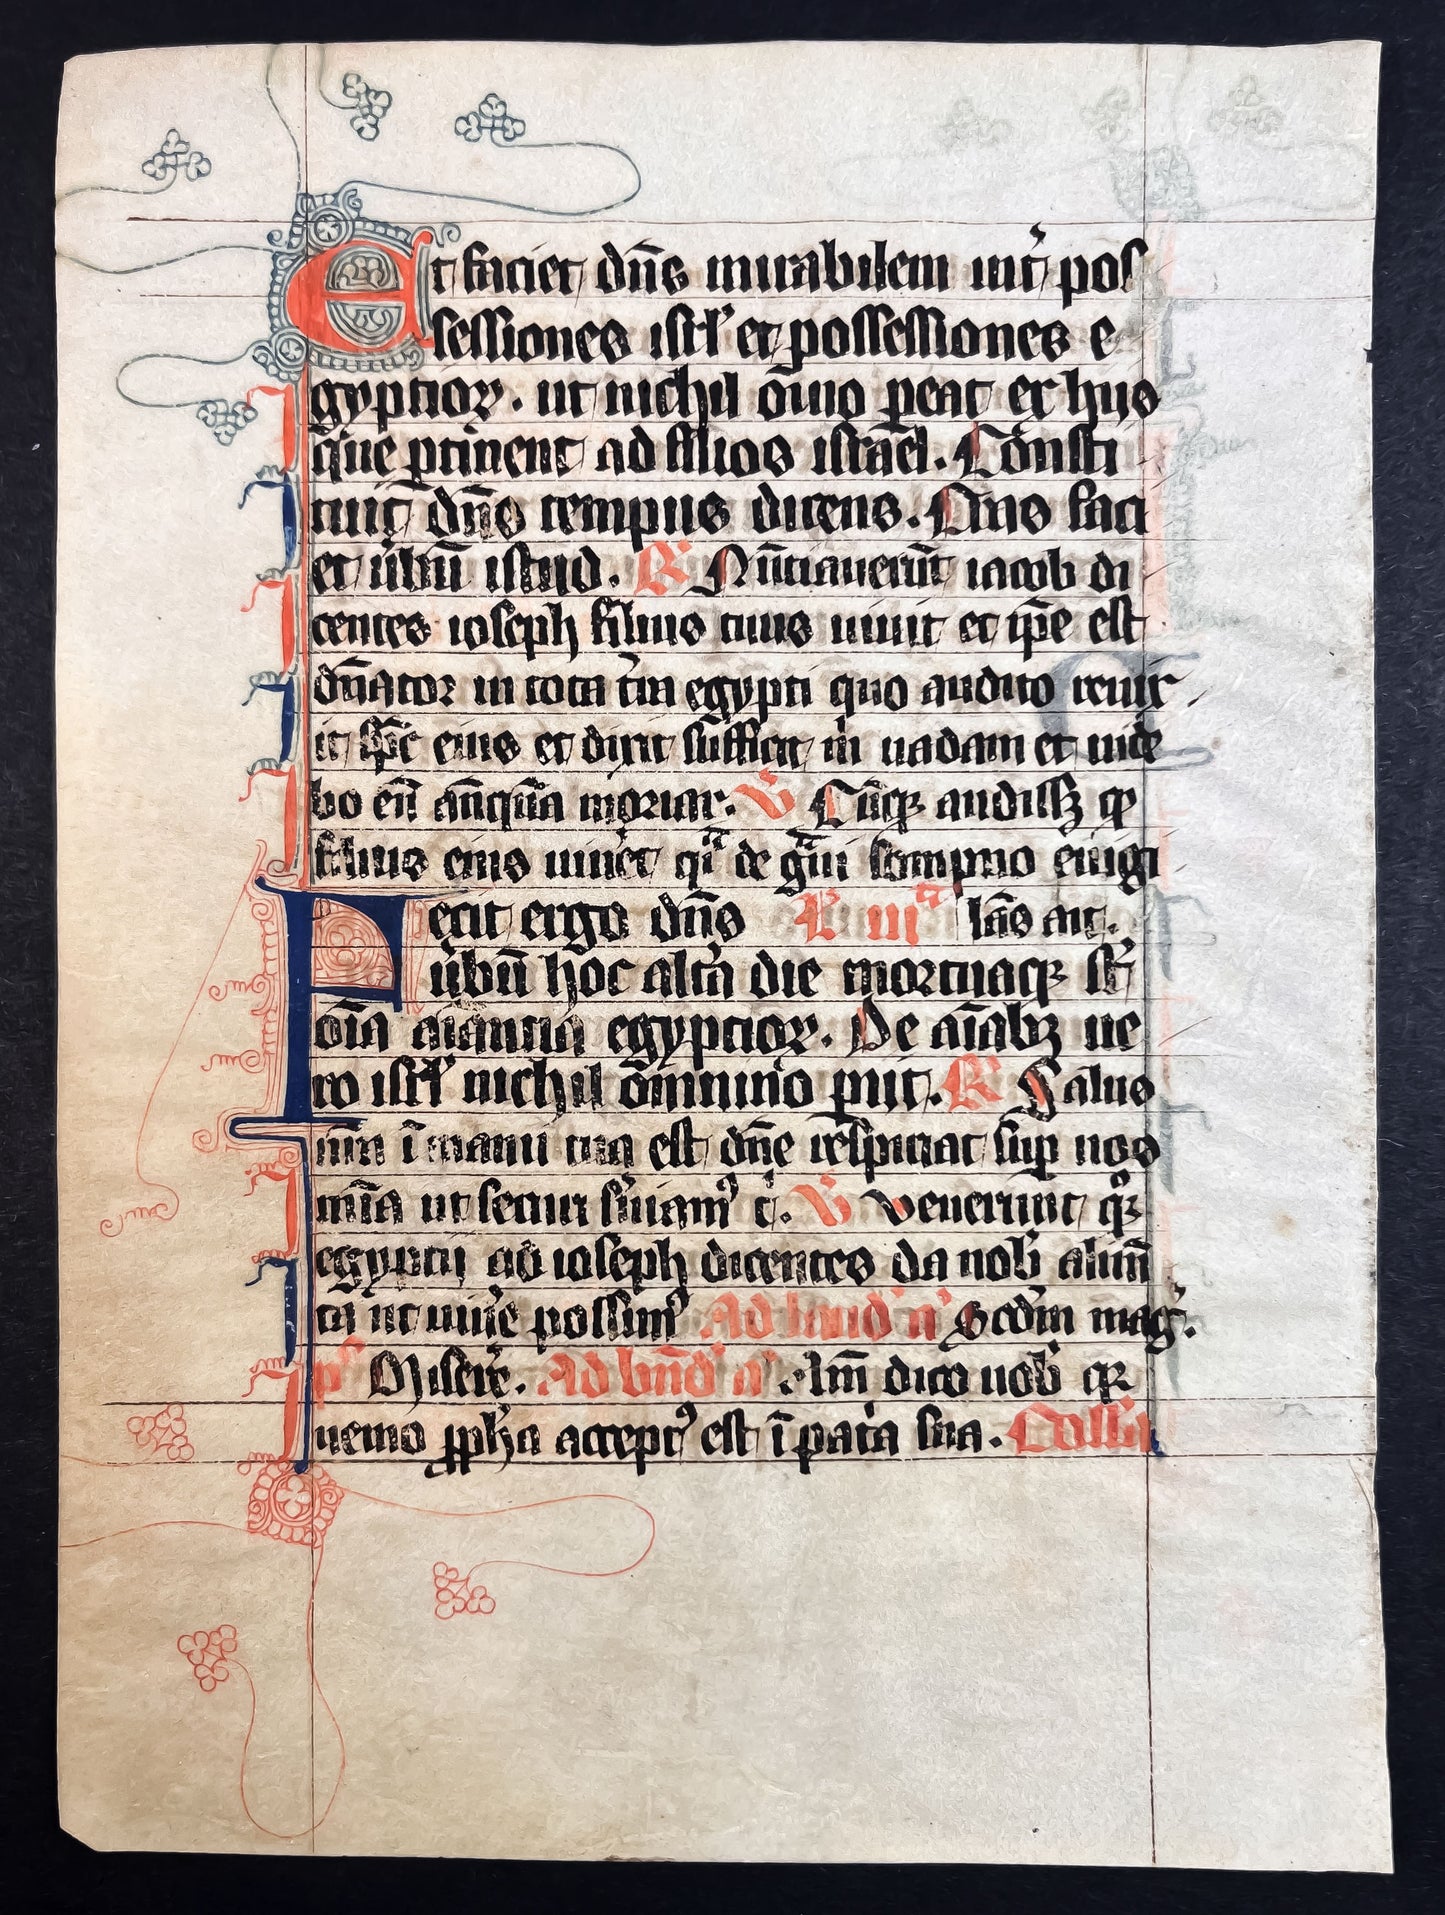 Et faciet dn̄s mirabilem int̉ pos
sessiones isrl̉ et possessiones e
gyptioꝝ. ut nichil om̄io ꝑeat ex hijs
que ꝑtinent ad filios israel. Consti
tuit dn̄s tempus dicens. Cras faci
et ủbū istud. R̉ Nūtiauerūt iacob di
centes ioseph filius tuus uiuit et ip̄e est
dn̄ator in tota t̉ra egypti quo audito reuix
it sp̄c eius et dixit sufficit m̉ uadam et uide
bo eū an̄quā moriar. V̉ Cūqꝫ audissꝫ ꝙ
filius eius uiuẻt qͣ de gͣui sompno euigi
lās ait. L̉ iiiͣ
Fecit ergo dn̄s
ủbū hoc altẻa die mortuaqꝫ st̉
om̄ia aīantia egyptioꝝ. De aīabꝫ ue
ro isrl̉ nichil omnino ꝑiit. R̉ Salus
nr̄a ī manu tua est dn̄e respiciat suꝑ nos
mīa ut securi ẛuiamꝰ t̉. V̉ Venerunt qͦꝫ
egyptij ad ioseph dicentes da nob̉ alim̄
ta ut uiuẻ possimꝰ Ad laud̉ ả Scdm̄ mag̉.
pͣ Miserẻ. Ad bn̄d̉ ả Am̄ dico uob̉ ꝙ
nemo ꝓph̉a acceptꝰ est ī pat̉a sua. Coll̄a